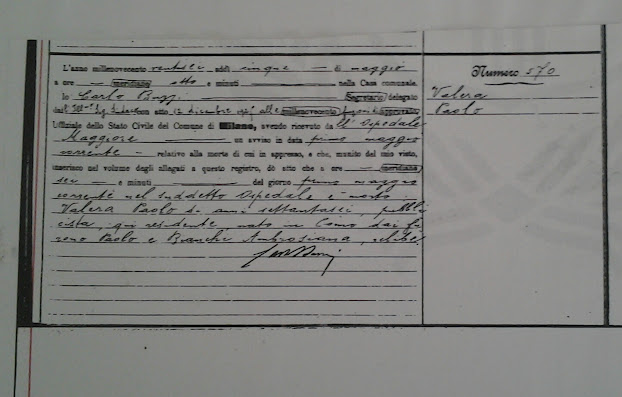 L'anno millenovecento ventisei addì cinque — di maggio
a ore — meridiane otto e minuti — nella Casa comunale.
Io Carlo Segretario delegato
con atto 12 dicembre alle millenovecento
Uffiziale dello Stato Civile del Comune di Milano, avendo ricevuto dall'Ospedale
Maggiore — un avviso in data primo maggio
corrente — relativo alla morte di cui in appresso, e che, munito del mio visto,
inserisco nel volume degli allegati a questo registro, dò atto che a ore — meridiane
sei — e minuti — del giorno primo maggio
corrente nel suddetto Ospedale è morto
Valera Paolo di anni settantasei, pubbli
cista, qui residente, nato in Como dai fu
rono Paolo e Bianchi Ambrosiana, celibe
Numero 570
Valera
Paolo